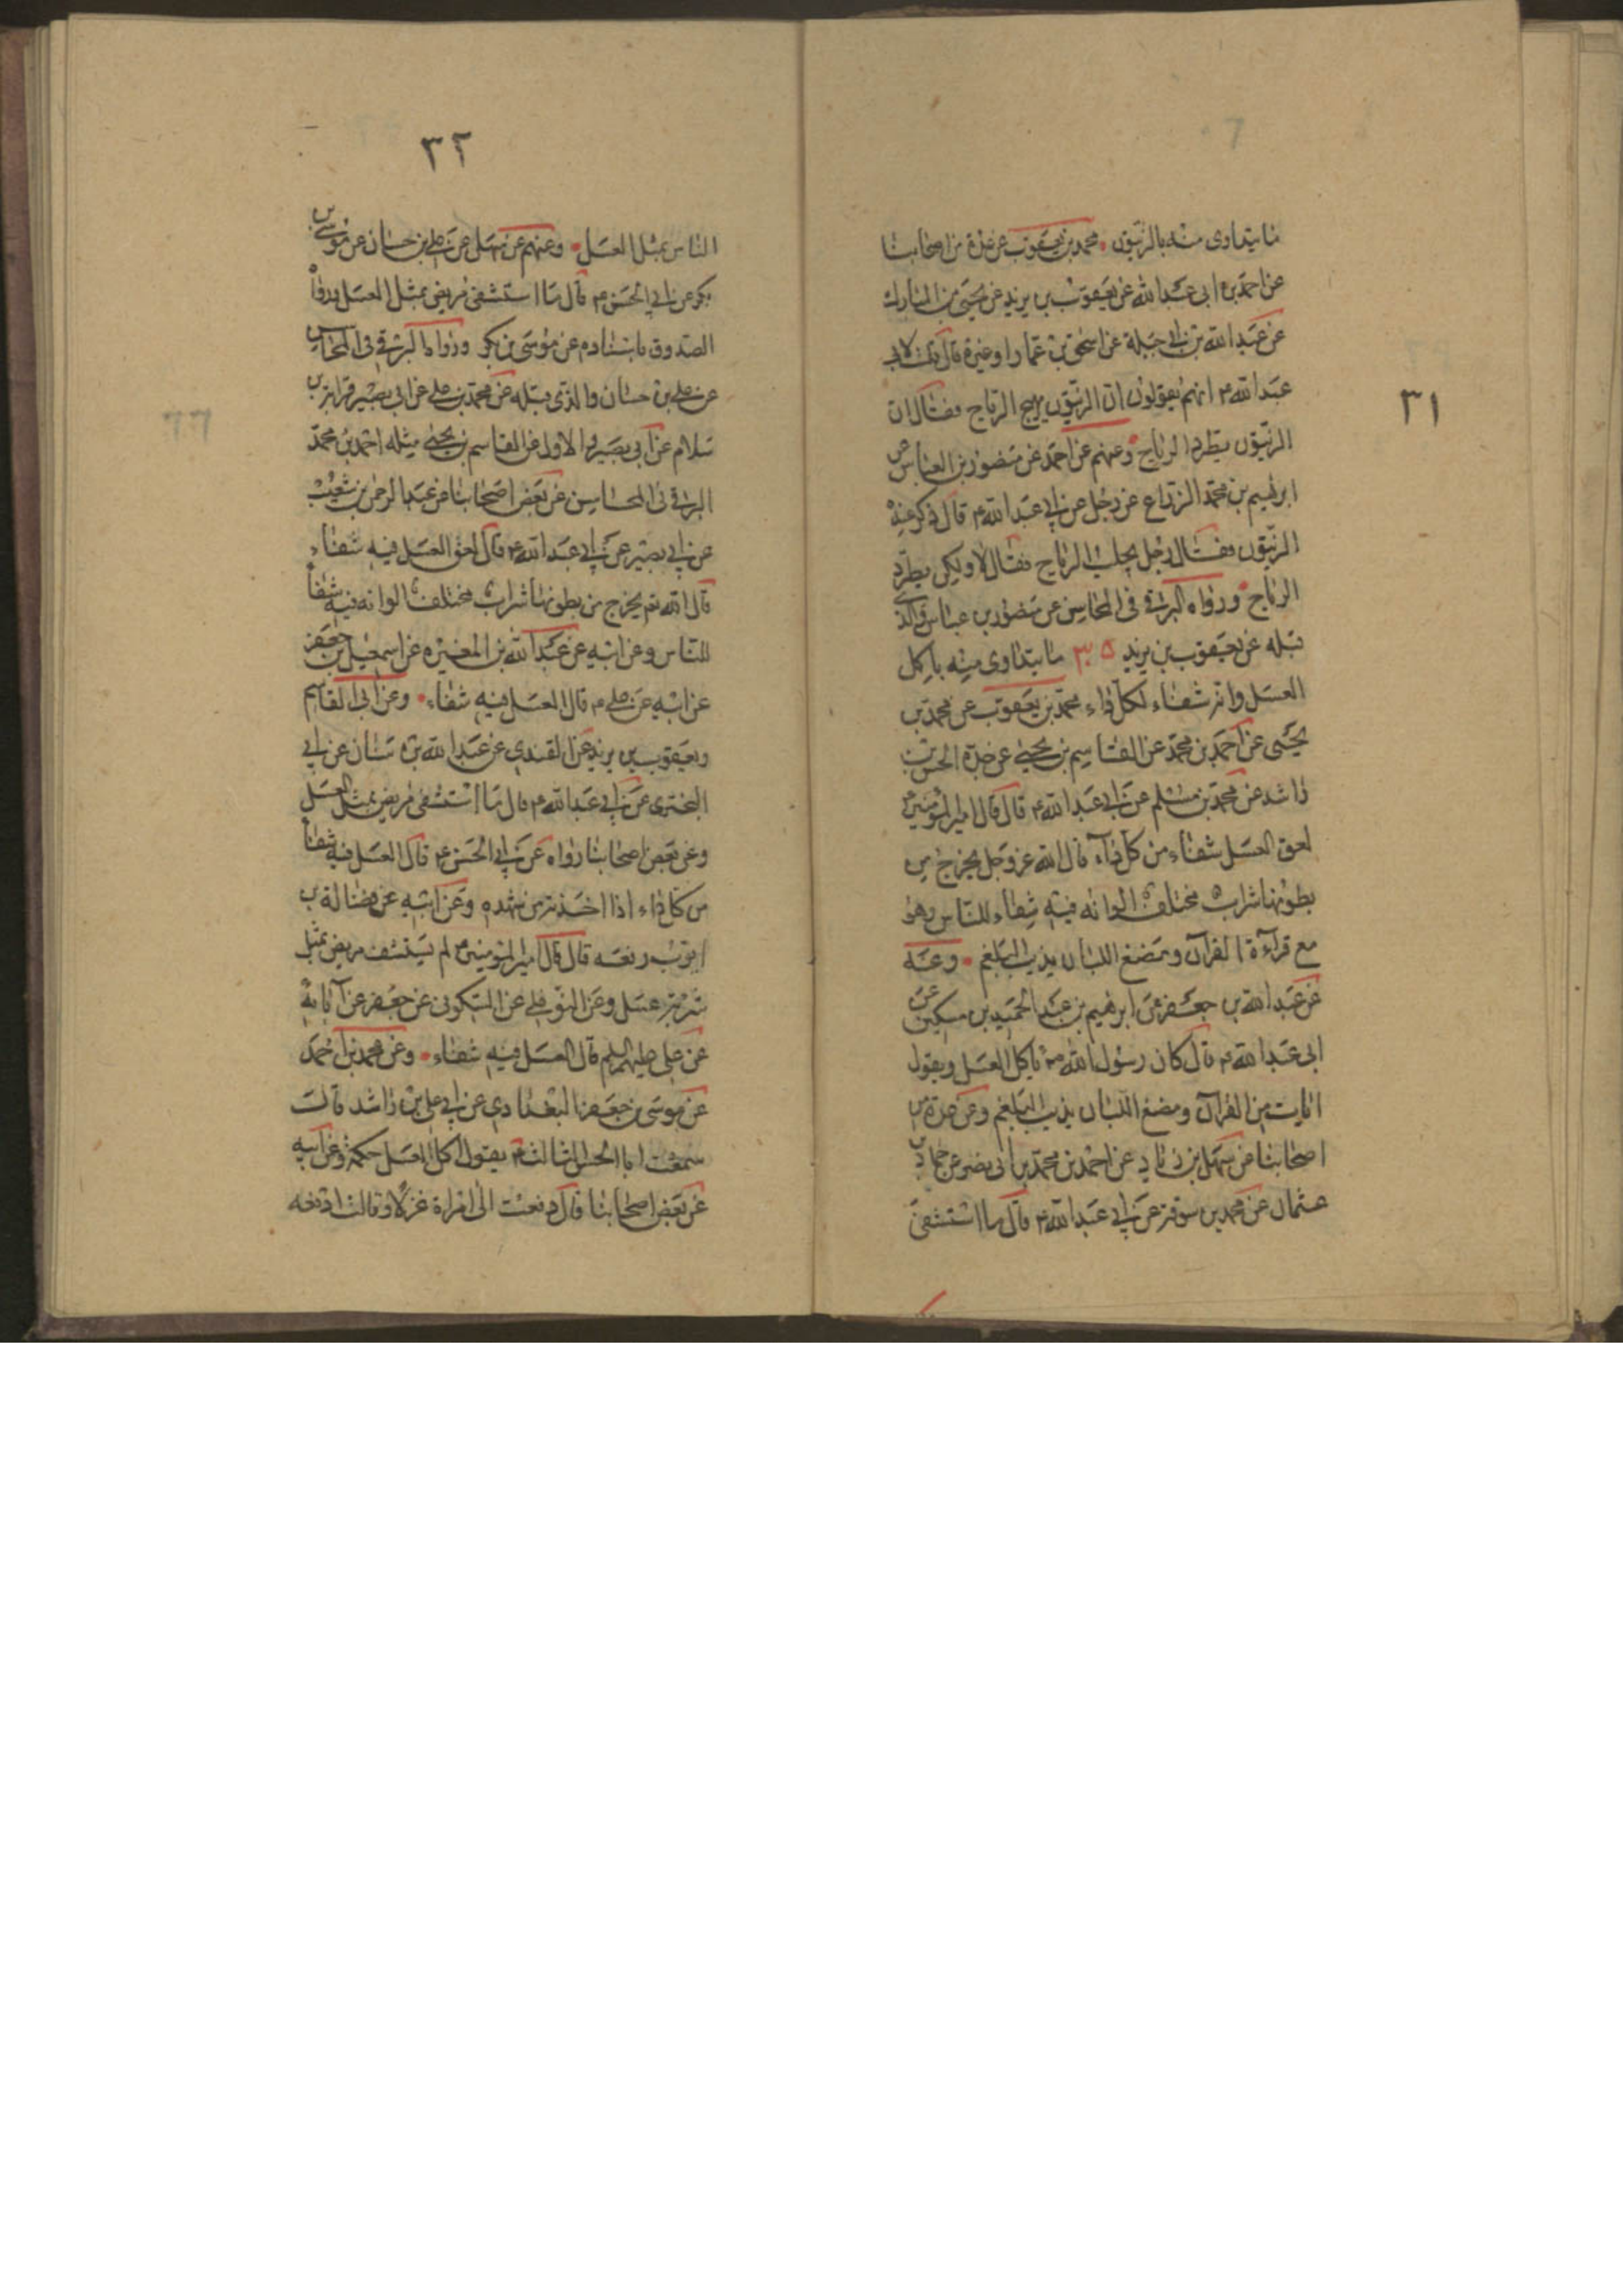 ٣١
ما يتداوى منه بالزيتون محمد بن يعقوب عن عدة من اصحابنا
عن احمد بن ابى عبد الله عن يعقوب بن يزيد عن يحيى بن المبارك
عن عبد الله بن ابى جبلة عن اسحق بن عمار او غيره قال قلت لابى
عبد الله ۴ انهم يقولون ان الزيتون يهيج الرياح فقال ان
الزيتون يطرد الرياح وعنهم عن احمد عن منصور بن العباس عن
ابرهيم بن محمد الزراع عن رجل عن ابى عبد الله ۴ قال ذكر عنده
الزيتون فقال رجل يجلب الرياح فقال لا ولكن يطرد
الرياح ورواه البرقى فى المحاسن عن منصور بن عباس والذى
قبله عن يعقوب بن يزيد ما يتداوى منه باكل
العسل وانه شفاء لكل داء محمد بن يعقوب عن محمد بن
يحيى عن احمد بن محمد عن القاسم بن يحيى عن جده الحسن بن
راشد عن محمد بن مسلم عن ابى عبد الله ۴ قال قال امير المؤمنين
لعق العسل شفاء من كل داء قال الله عز وجل يخرج من
بطونها شراب مختلف الوانه فيه شفاء للناس وهو
مع قراءة القرآن ومضغ اللبان يذيب البلغم وعنه
عن عبد الله بن جعفر عن ابرهيم بن عبد الحميد بن مسكين عن
ابى عبد الله ۴ قال كان رسول الله ص ياكل العسل ويقول
ايات من القرآن ومضغ اللبان يذيب البلغم وعن عدة من
اصحابنا عن سهل بن زياد عن احمد بن محمد بن ابى نصر عن حماد بن
عثمان عن محمد بن سوقه عن ابى عبد الله ۴ قال ما استشفى
٣٢
الناس بمثل العسل وعنهم عن سهل عن على بن حسان عن موسى بن
بكر عن ابى الحسن ۴ قال ما استشفى مريض بمثل العسل ورواه
الصدوق باسناده عن موسى بن بكر ورواه البرقى فى المحاسن
عن على بن حسان والذى قبله عن محمد بن على عن ابى بصير
سلام عن ابى بصير والاول عن القاسم بن يحيى مثله احمد بن محمد
البرقى فى المحاسن عن بعض اصحابنا عن عبد الرحمن بن شعيب
عن ابى بصير عن ابى عبد الله ۴ قال لعق العسل فيه شفاء
قال الله تعم يخرج من بطونها شراب مختلف الوانه فيه شفاء
للناس وعن ابيه عن عبد الله بن المغيره عن اسمعيل بن جعفر
عن ابيه عن على ۴ قال العسل فيه شفاء وعن ابى القاسم
ويعقوب بن يزيد عن القندى عن عبد الله بن سنان عن ابى
البخترى عن ابى عبد الله ۴ قال ما استشفى مريض بمثل العسل
وعن بعض اصحابنا رواه عن ابى الحسن ۴ قال العسل فيه شفاء
من كل داء اذا اخذته من شهده وعن ابيه عن فضالة بن
ايوب رفعه قال قال امير المؤمنين ۴ لم يستشف مريض بمثل
شربة عسل وعن النوفلى عن السكونى عن جعفر عن آبائه
عن على عليهم السلم قال العسل فيه شفاء وعن محمد بن احمد
عن موسى بن جعفر البغدادى عن ابى على بن راشد قال
سمعت ابا الحسن الثالث ۴ يقول اكل العسل حكمة وعن ابيه
عن بعض اصحابنا قال دفعت الى امراة غزلا وقالت ادفعه